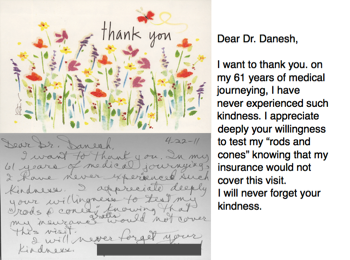 thank you
Dear Dr. Danesh, 9-22-11
I want to thank you. In my
61 years of medical journeying
I have never experienced such
kindness. I appreciate deeply
your willingness to test my
"rods & cones" knowing that
gratis
my insurance would not cover
this visit.
I will never forget your
kindness.
Dear Dr. Danesh,
I want to thank you. on
my 61 years of medical
journeying, I have
never experienced such
kindness. I appreciate
deeply your willingness
to test my “rods and
cones” knowing that my
insurance would not
cover this visit.
I will never forget your
kindness.